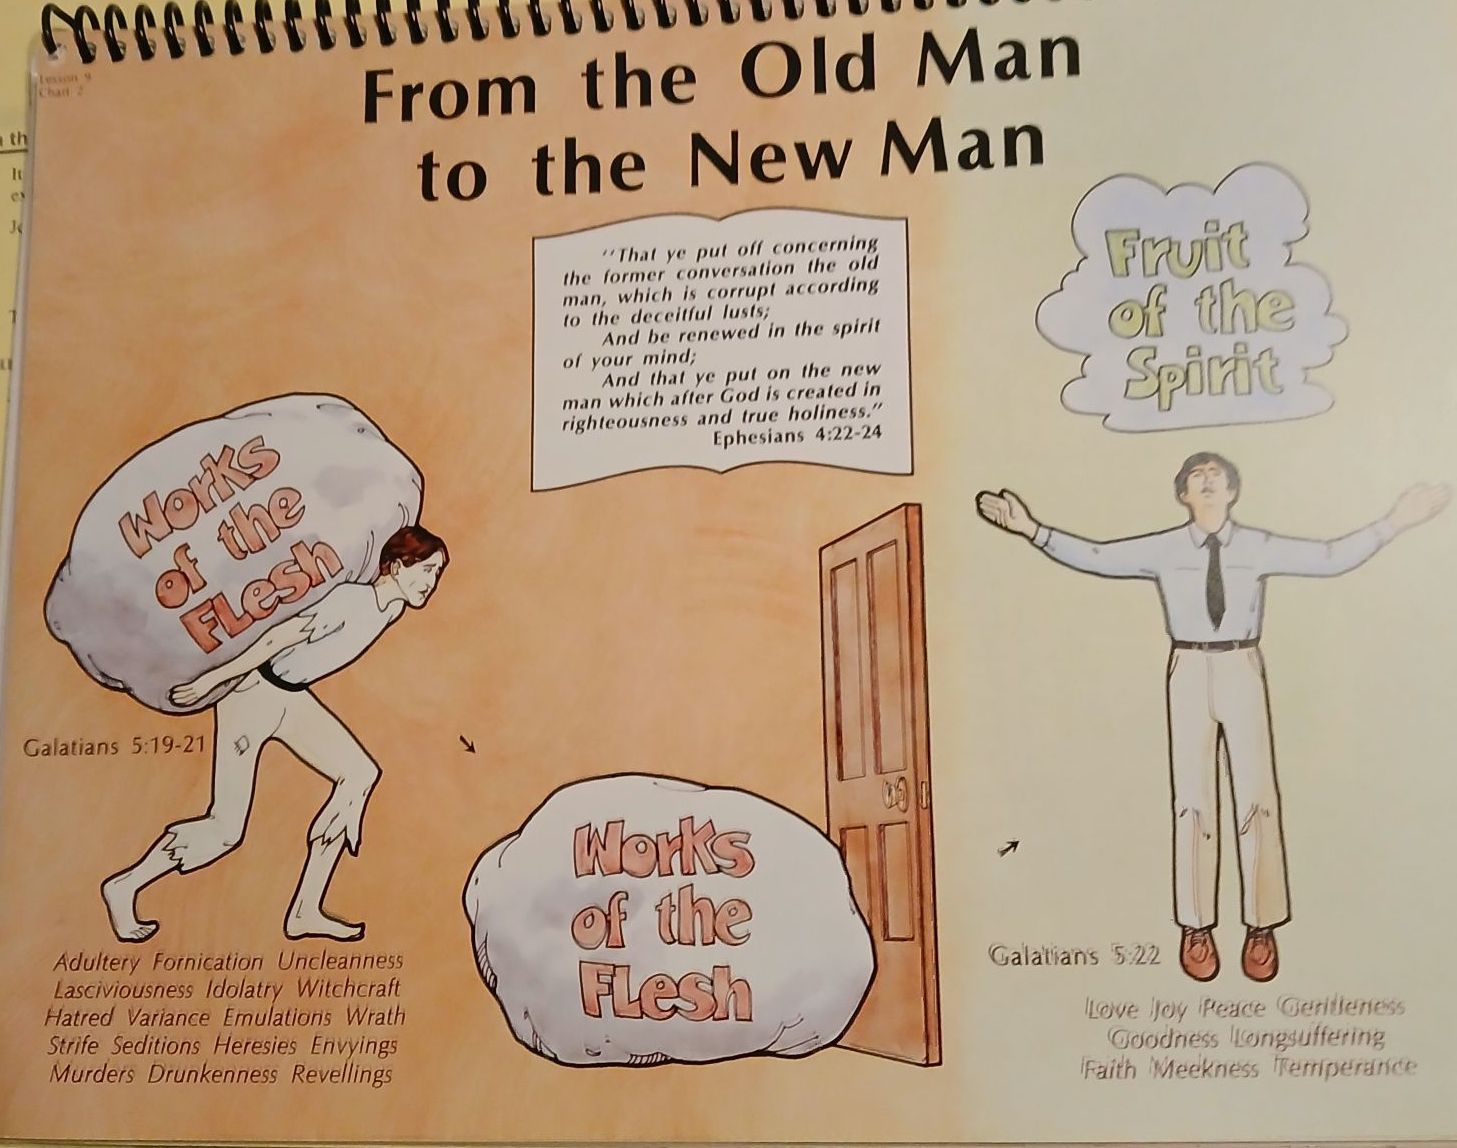 Lesson 9
Chart 2
From the Old Man
to the New Man
"That ye put off concerning
the former conversation the old
man, which is corrupt according
to the deceitful lusts;
And be renewed in the spirit
of your mind;
And that ye put on the new
man which after God is created in
righteousness and true holiness."
Ephesians 4:22-24
Fruit
of the
Spirit
Works
of the
Flesh
Galatians 5:19-21
Adultery Fornication Uncleanness
Lasciviousness Idolatry Witchcraft
Hatred Variance Emulations Wrath
Strife Seditions Heresies Envyings
Murders Drunkenness Revellings
Works
of the
Flesh
Galatians 5:22
Love Joy Peace Gentleness
Goodness Longsuffering
Faith Meekness Temperance